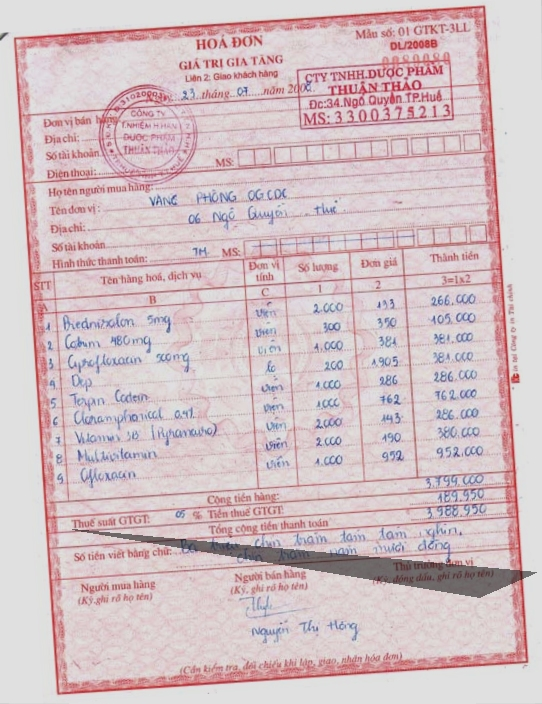 HOÁ ĐƠN
GIÁ TRỊ GIA TĂNG
Liên 2: Giao khách hàng
Mẫu số: 01 GTKT-3LL
DL/2008B
0089080
23 tháng 07 năm 200
CTY TNHH.DƯỢC PHẨM
THUẬN THẢO
Đc:34.Ngô Quyền.TP.Huế
MS: 3300375213
CÔNG TY
T.NHIỆM H.HẠN
DƯỢC PHẨM
THUẬN THẢO
Đơn vị bán hàng
Địa chỉ:
Số tài khoản
Điện thoại: MS:
Họ tên người mua hàng:
Tên đơn vị: VĂNG PHÒNG OGCDC
Địa chỉ: 06 Ngô Quyền Huế
Số tài khoản
Hình thức thanh toán: TM MS:
STT Tên hàng hoá, dịch vụ Đơn vị tính Số lượng Đơn giá Thành tiền
A B C 1 2 3=1x2
1 Prednisolon 5mg viên 2.000 133 266.000
2 Cotrim 480mg viên 300 350 105.000
3 Ciprofloxacin 500mg viên 1.000 381 381.000
4 Dep lo 200 1.905 381.000
5 Terpin Codein viên 1.000 286 286.000
6 Cloramphenical viên 1.000 762 762.000
7 Vitamin viên 2.000 143 286.000
8 Multivitamin viên 2.000 190 380.000
9 Ofloxacin viên 1.000 952 952.000
Cộng tiền hàng: 3.799.000
Thuế suất GTGT: 05 % Tiền thuế GTGT: 189.950
Tổng cộng tiền thanh toán 3.988.950
Số tiền viết bằng chữ: Ba triệu chín trăm tám tám nghìn,
chín trăm năm mươi đồng
Người mua hàng Người bán hàng Thủ trưởng đơn vị
(Ký, ghi rõ họ tên) (Ký, ghi rõ họ tên) (Ký, đóng dấu, ghi rõ họ tên)
Nguyễn Thị Hồng
(Cần kiểm tra, đối chiếu khi lập, giao, nhận hóa đơn)